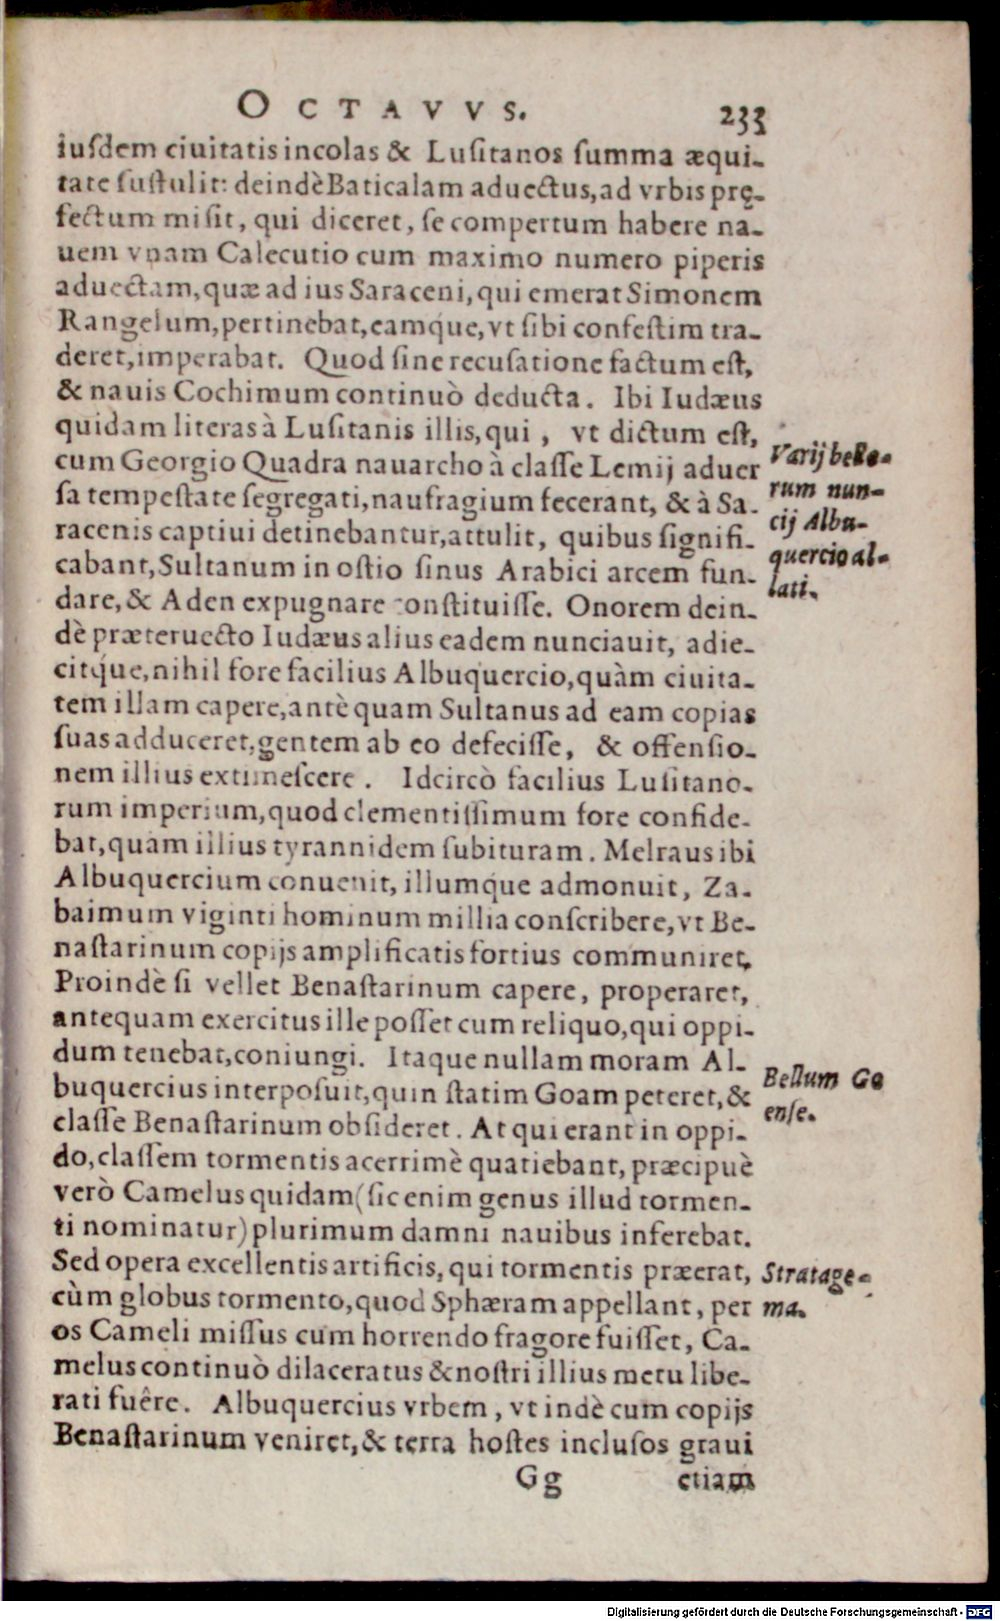 OCTAVVS. 233
iusdem ciuitatis incolas & Lusitanos summa æqui-
tate sustulit: deindè Baticalam aduectus, ad vrbis prę-
fectum misit, qui diceret, se compertum habere na-
uem vnam Calecutio cum maximo numero piperis
aduectam, quæ ad ius Saraceni, qui emerat Simonem
Rangelum, pertinebat, eamque, vt sibi confestim tra-
deret, imperabat. Quod sine recusatione factum est,
& nauis Cochimum continuò deducta. Ibi Iudæus
quidam literas à Lusitanis illis, qui, vt dictum est,
cum Georgio Quadra nauarcho à classe Lemij aduer
sa tempestate segregati, naufragium fecerant, & à Sa-
racenis captiui detinebantur, attulit, quibus signifi-
cabant, Sultanum in ostio sinus Arabici arcem fun-
dare, & Aden expugnare constituisse. Onorem dein-
dè præteruecto Iudæus alius eadem nunciauit, adie-
citque, nihil fore facilius Albuquercio, quàm ciuita-
tem illam capere, antè quam Sultanus ad eam copias
suas adduceret, gentem ab eo defecisse, & offensio-
nem illius extimescere. Idcircò facilius Lusitano-
rum imperium, quod clementissimum fore confide-
bat, quam illius tyrannidem subituram. Melraus ibi
Albuquercium conuenit, illumque admonuit, Za-
baimum viginti hominum millia conscribere, vt Be-
nastarinum copijs amplificatis fortius communiret.
Proindè si vellet Benastarinum capere, properaret,
antequam exercitus ille posset cum reliquo, qui oppi-
dum tenebat, coniungi. Itaque nullam moram Al-
buquercius interposuit, quin statim Goam peteret, &
classe Benastarinum obsideret. At qui erant in oppi-
do, classem tormentis acerrimè quatiebant, præcipuè
verò Camelus quidam (sic enim genus illud tormen-
ti nominatur) plurimum damni nauibus inferebat.
Sed opera excellentis artificis, qui tormentis præerat,
cùm globus tormento, quod Sphæram appellant, per
os Cameli missus cum horrendo fragore fuisset, Ca-
melus continuò dilaceratus & nostri illius metu libe-
rati fuêre. Albuquercius vrbem, vt indè cum copijs
Benastarinum veniret, & terra hostes inclusos graui
Gg etiam
Varij bello-
rum nun-
cij Albu-
quercio al-
lati.
Bellum Go
ense.
Stratage-
ma.
Digitalisierung gefördert durch die Deutsche Forschungsgemeinschaft - DFG